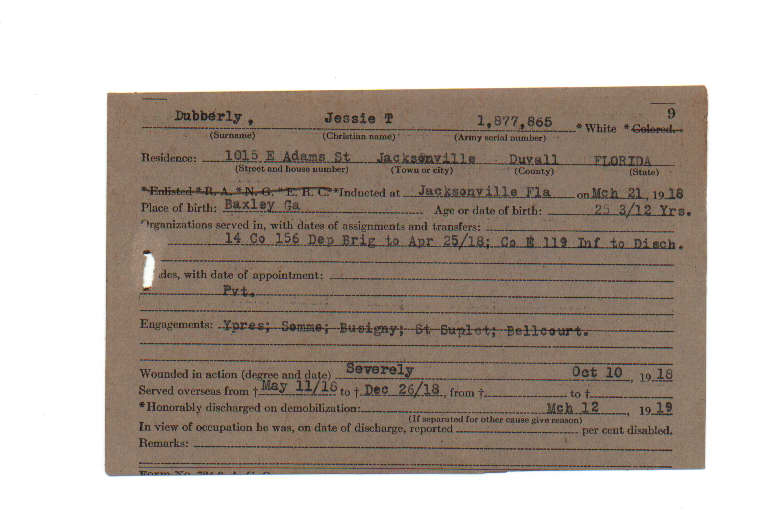 9
Dubberly, Jessie T 1,877,865 * White * Colored.
(Surname) (Christian name) (Army serial number)
Residence: 1015 E Adams St Jacksonville Duvall FLORIDA
(Street and house number) (Town or city) (County) (State)
*Enlisted *R. A. *N. G. *E. R. C. *Inducted at Jacksonville Fla on Mch 21, 1918
Place of birth: Baxley Ga Age or date of birth: 25 3/12 Yrs.
Organizations served in, with dates of assignments and transfers:
14 Co 156 Dep Brig to Apr 25/18; Co E 119 Inf to Disch.
des, with date of appointment:
Pvt.
Engagements: Ypres; Somme; Busigny; St Suplet; Bellcourt.
Wounded in action (degree and date) Severely Oct 10, 1918
Served overseas from † May 11/18 to † Dec 26/18, from † to †
*Honorably discharged on demobilization: Mch 12, 1919
(If separated for other cause give reason)
In view of occupation he was, on date of discharge, reported per cent disabled.
Remarks:
Form No.